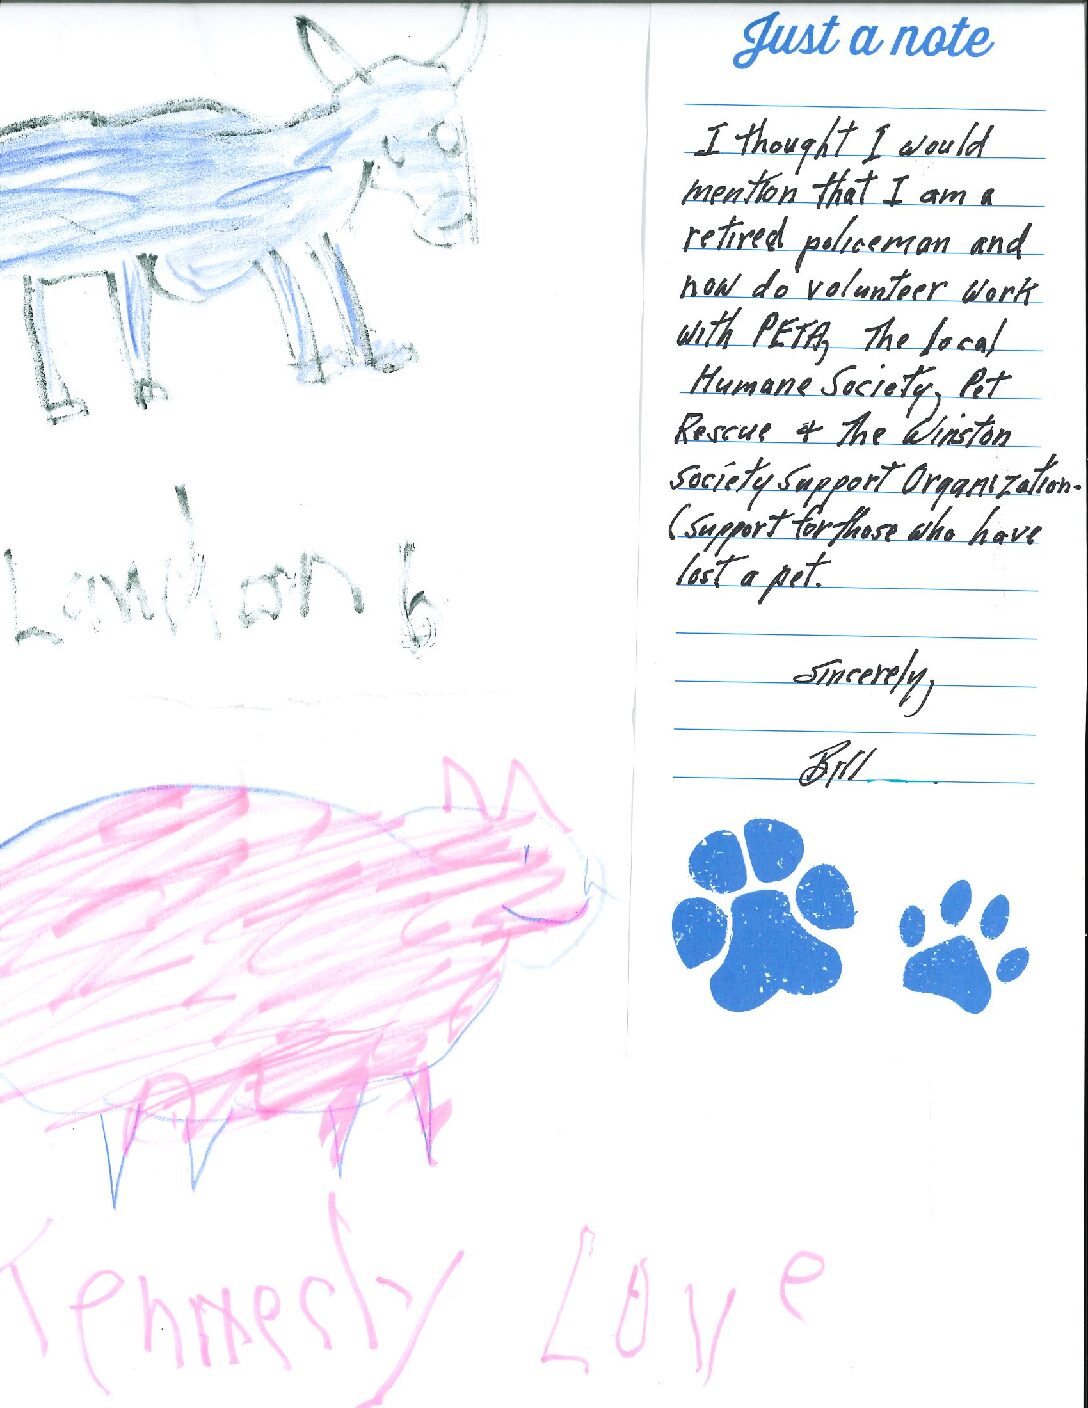 Just a note
I thought I would
mention that I am a
retired policeman and
now do volunteer work
with PETA, The local
Humane Society, Pet
Rescue & The Winston
Society Support Organization.
(Support for those who have
lost a pet.
Sincerely,
Bill
Landon 6
Kennedy Love